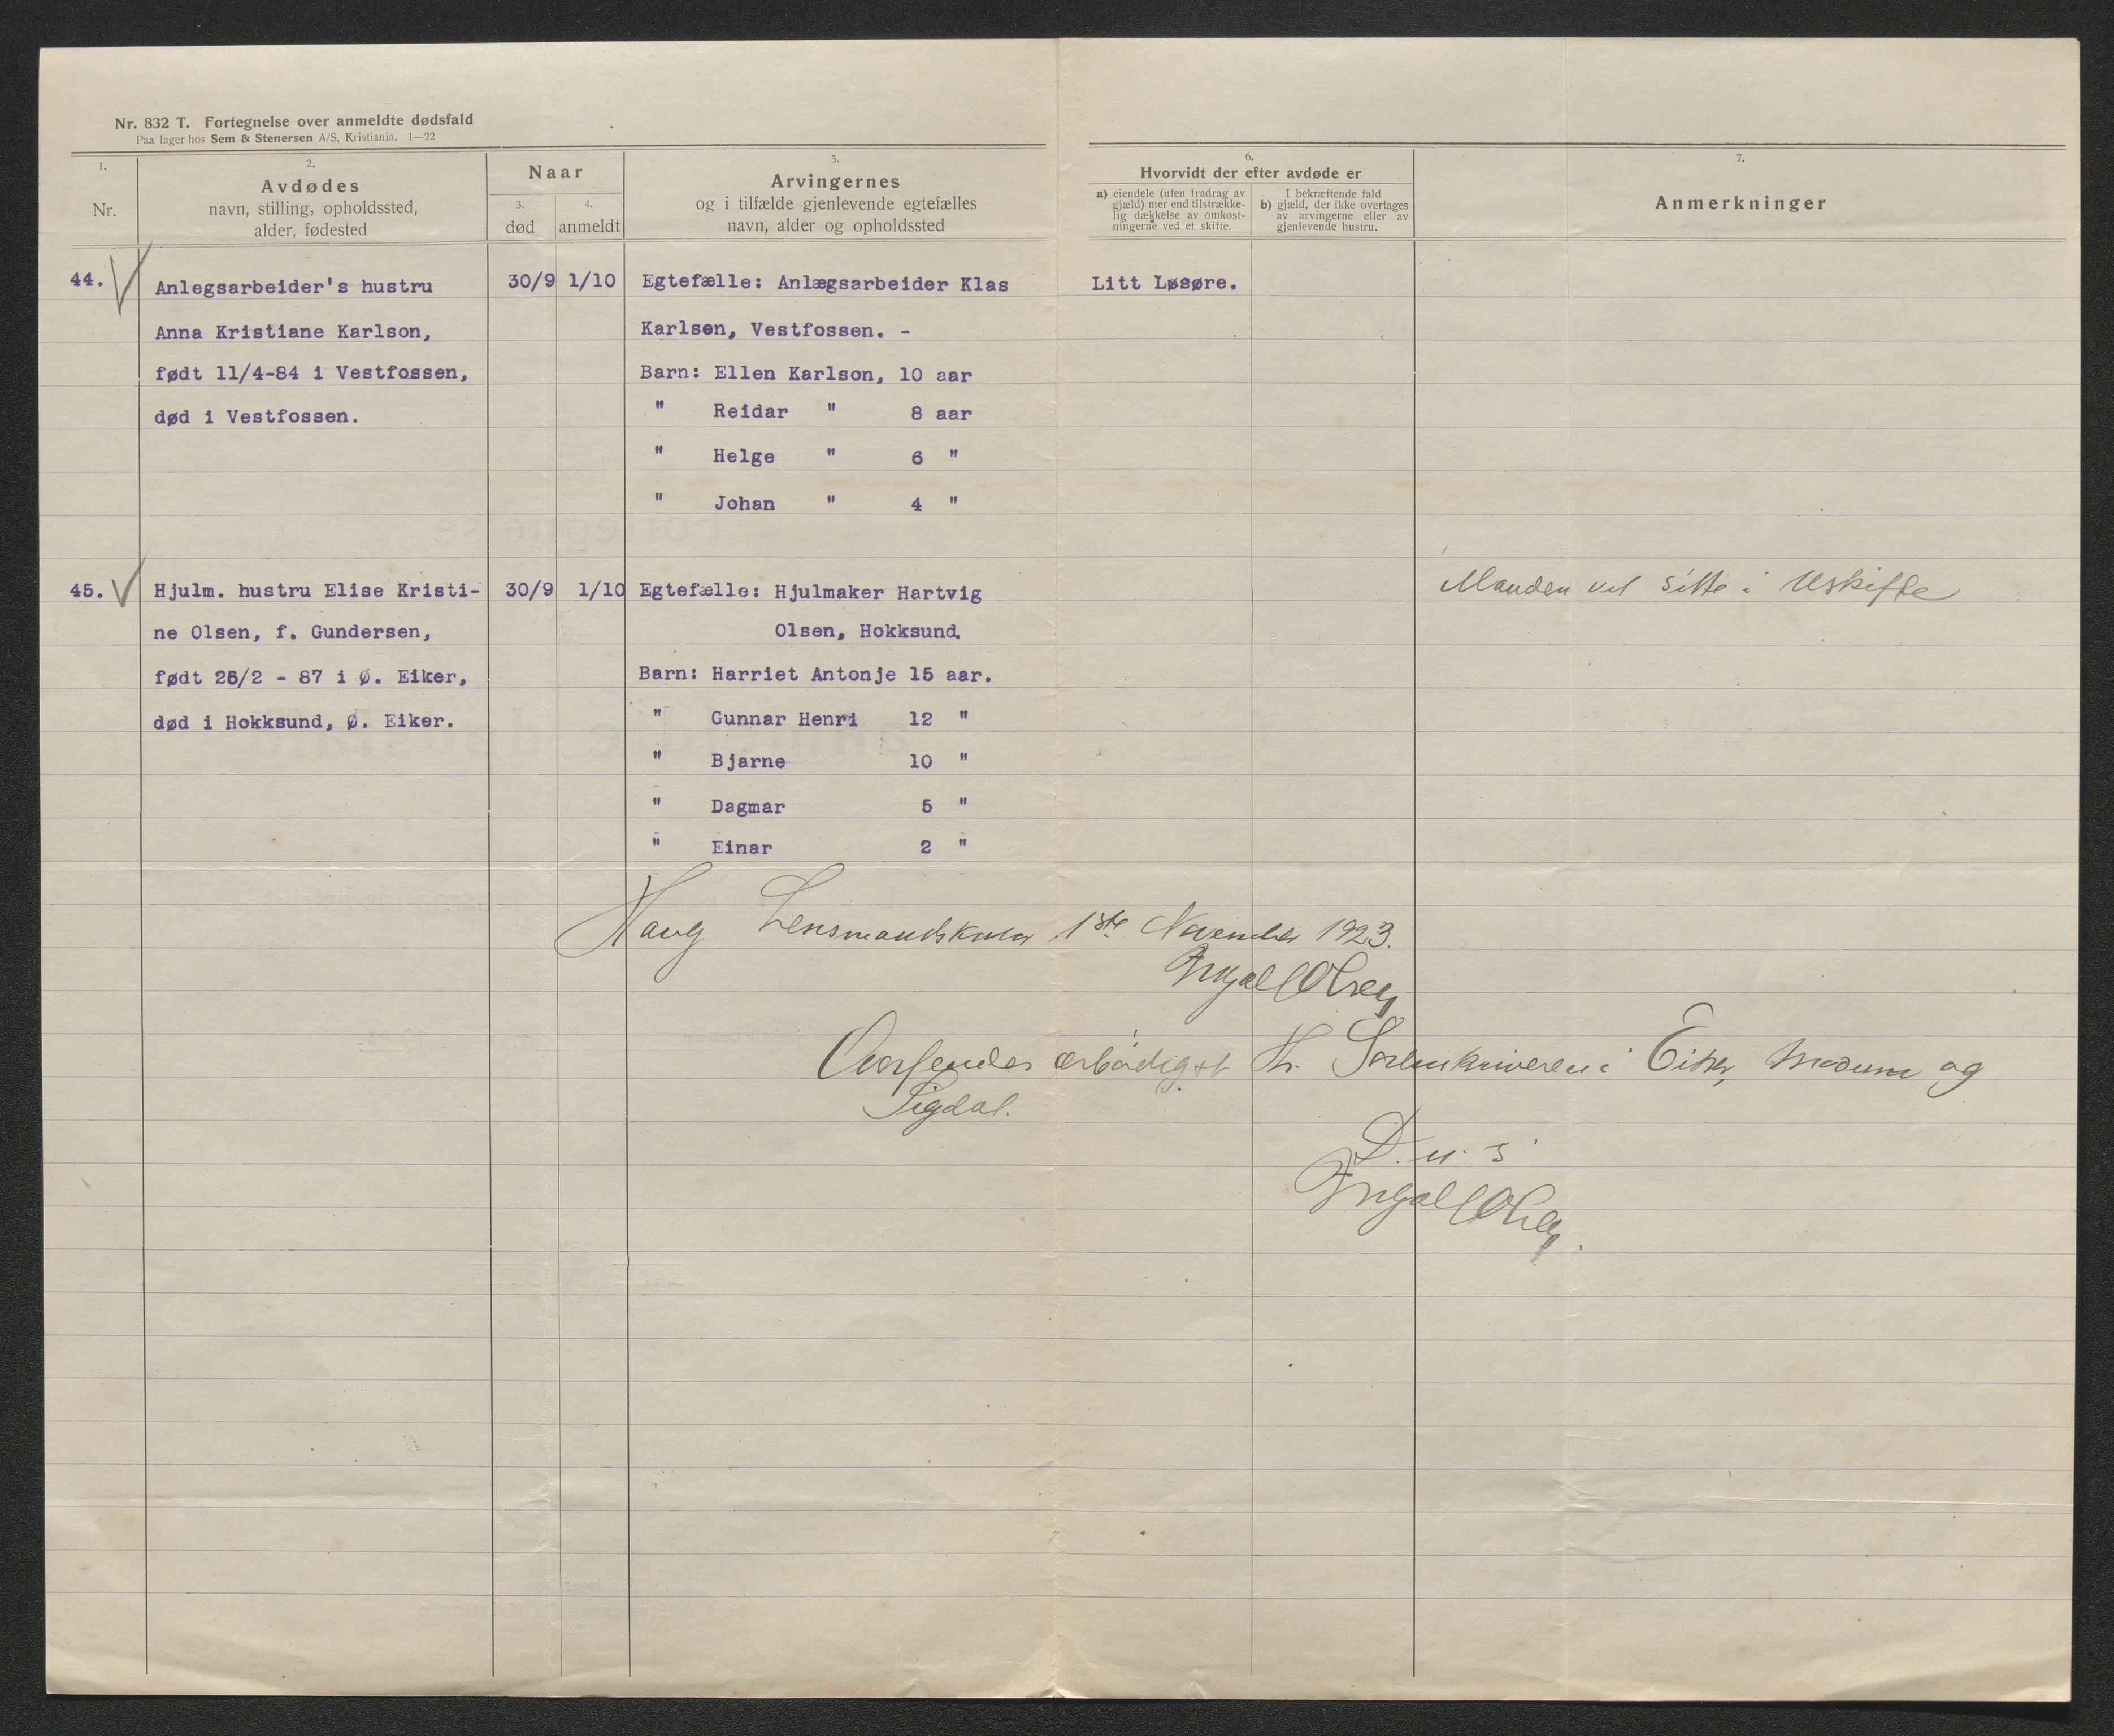 Nr. 832 T. Fortegnelse over anmeldte dødsfald
Paa lager hos Sem & Stenersen A/S, Kristiania. 1—22
1.
Nr.
2.
Avdødes
navn, stilling, opholdssted,
alder, fødested
Naar
3.
død
4.
anmeldt
5.
Arvingernes
og i tilfælde gjenlevende egtefælles
navn, alder og opholdssted
6.
Hvorvidt der efter avdøde er
a) eiendele (uten fradrag av
gjæld) mer end tilstrække-
lig dækkelse av omkost-
ningerne ved et skifte.
I bekræftende fald
b) gjæld, der ikke overtages
av arvingerne eller av
gjenlevende hustru.
7.
Anmerkninger
44.
Anlegsarbeider's hustru
Anna Kristiane Karlson,
født 11/4-84 i Vestfossen,
død i Vestfossen.
30/9 1/10
Egtefælle: Anlægsarbeider Klas
Karlsen, Vestfossen. -
Barn: Ellen Karlson, 10 aar
" Reidar " 8 aar
" Helge " 6 "
" Johan " 4 "
Litt Løsøre.
45.
Hjulm. hustru Elise Kristi-
ne Olsen, f. Gundersen,
født 26/2 - 87 i Ø. Eiker,
død i Hokksund, Ø. Eiker.
30/9 1/10
Egtefælle: Hjulmaker Hartvig
Olsen, Hokksund.
Barn: Harriet Antonje 15 aar.
" Gunnar Henri 12 "
" Bjarne 10 "
" Dagmar 5 "
" Einar 2 "
Manden vil sitte i Uskifte
Haug Lensmandskontor 1ste November 1923.
Oversendes ærbødigst Hr. Sorenskriveren i Eiker, Modum og
Sigdal.
D. u. s